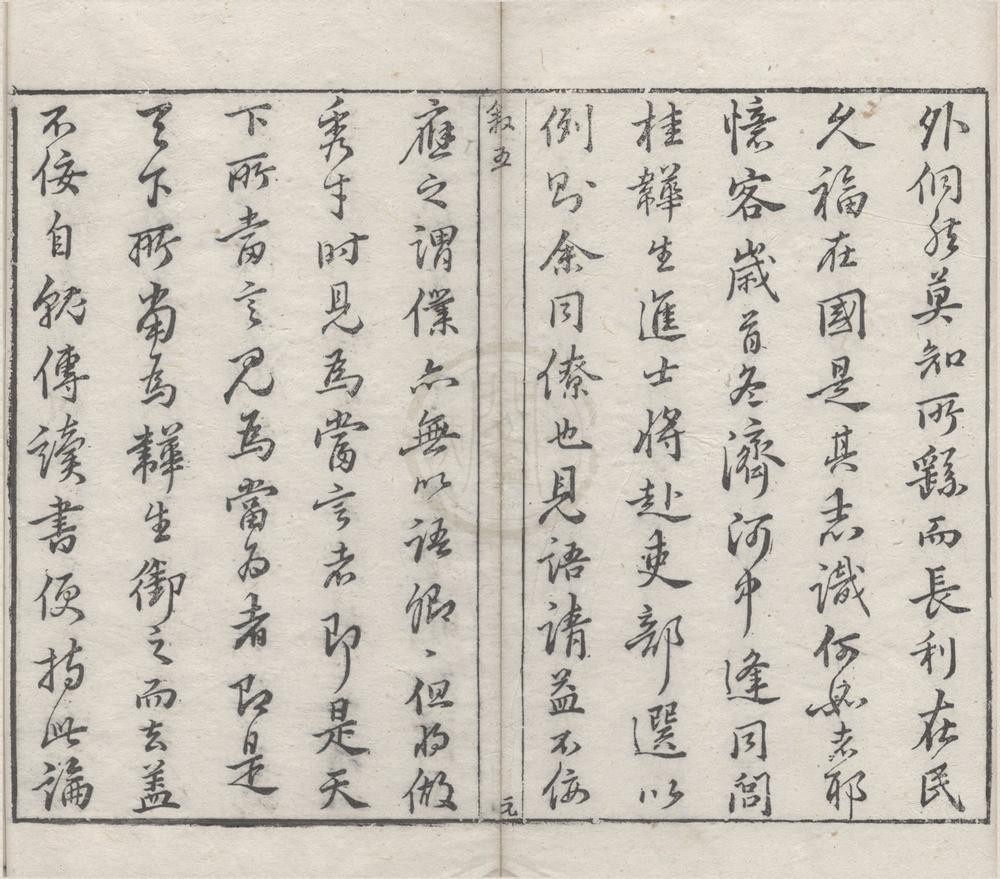 外侗然莫知所繇而長利在民
久福在國是其志識何如志耶
憶客歲首冬濟河中逢同閭
桂韡生進士將赴吏部選以
例則余同僚也見語請益不佞
敘五
元
應之謂僕亦無以語卿卿但將做
秀才時見為當言者即是天
下所當言見為當為者即是
天下所當為韡生銜之而去蓋
不佞自就傅讀書便持此論